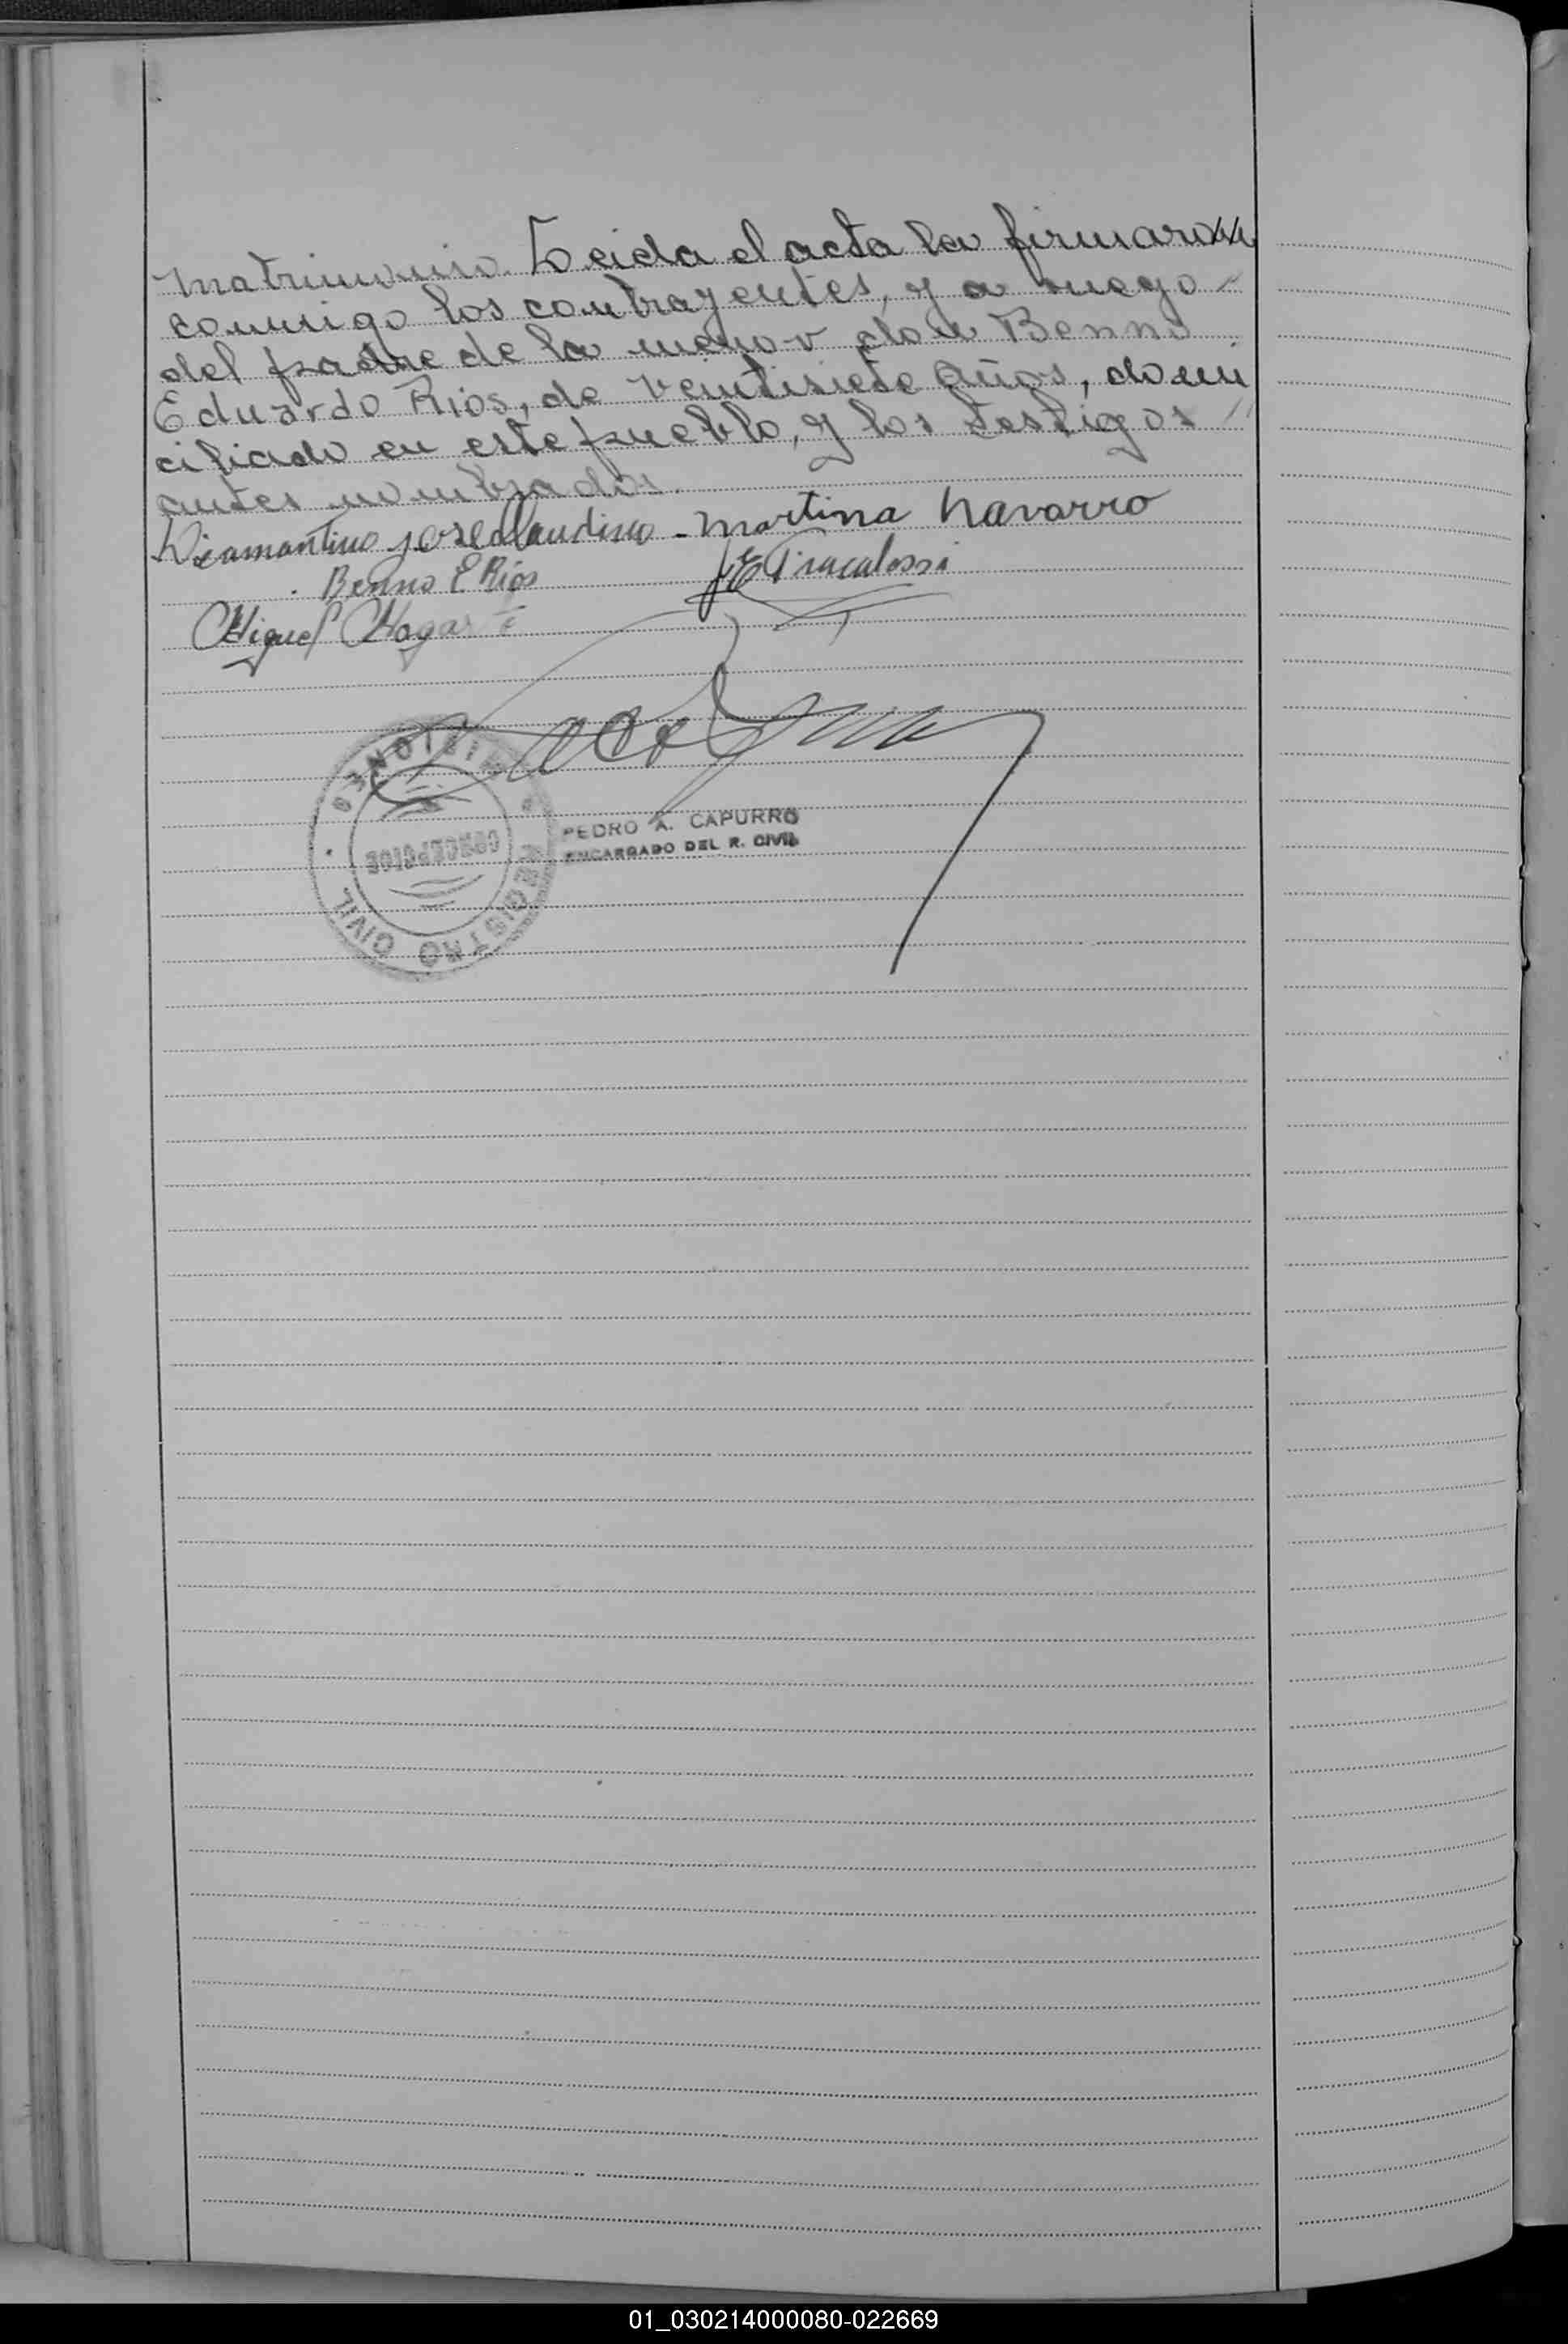 matrimonio. Leida el acta la firmaron
conmigo los contrayentes, y a ruego
del padre de la menor don Benno
Eduardo Rios, de veintisiete años, domi
ciliado en este pueblo, y los testigos
antes nombrados.
Diamantino Jose Claudino - Martina Navarro
Benno E Rios
Miguel
REGISTRO CIVIL
MISIONES
PEDRO A. CAPURRO
ENCARGADO DEL R. CIVIL
01_030214000080-022669